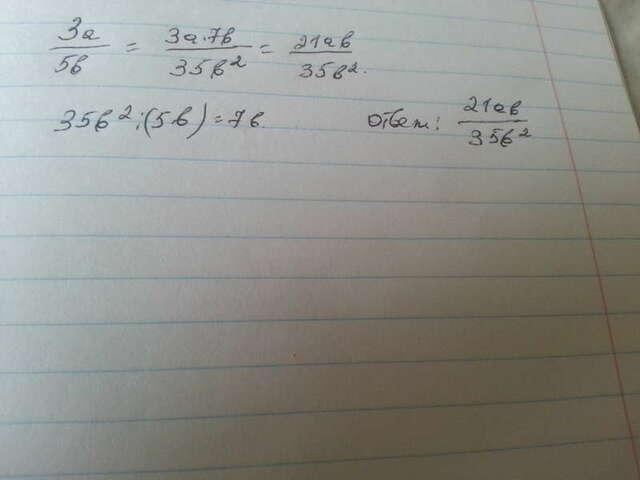 3a/5b = 3a·7b/35b² = 21ab/35b².
35b²:(5b)=7b ответ: 21ab/35b²